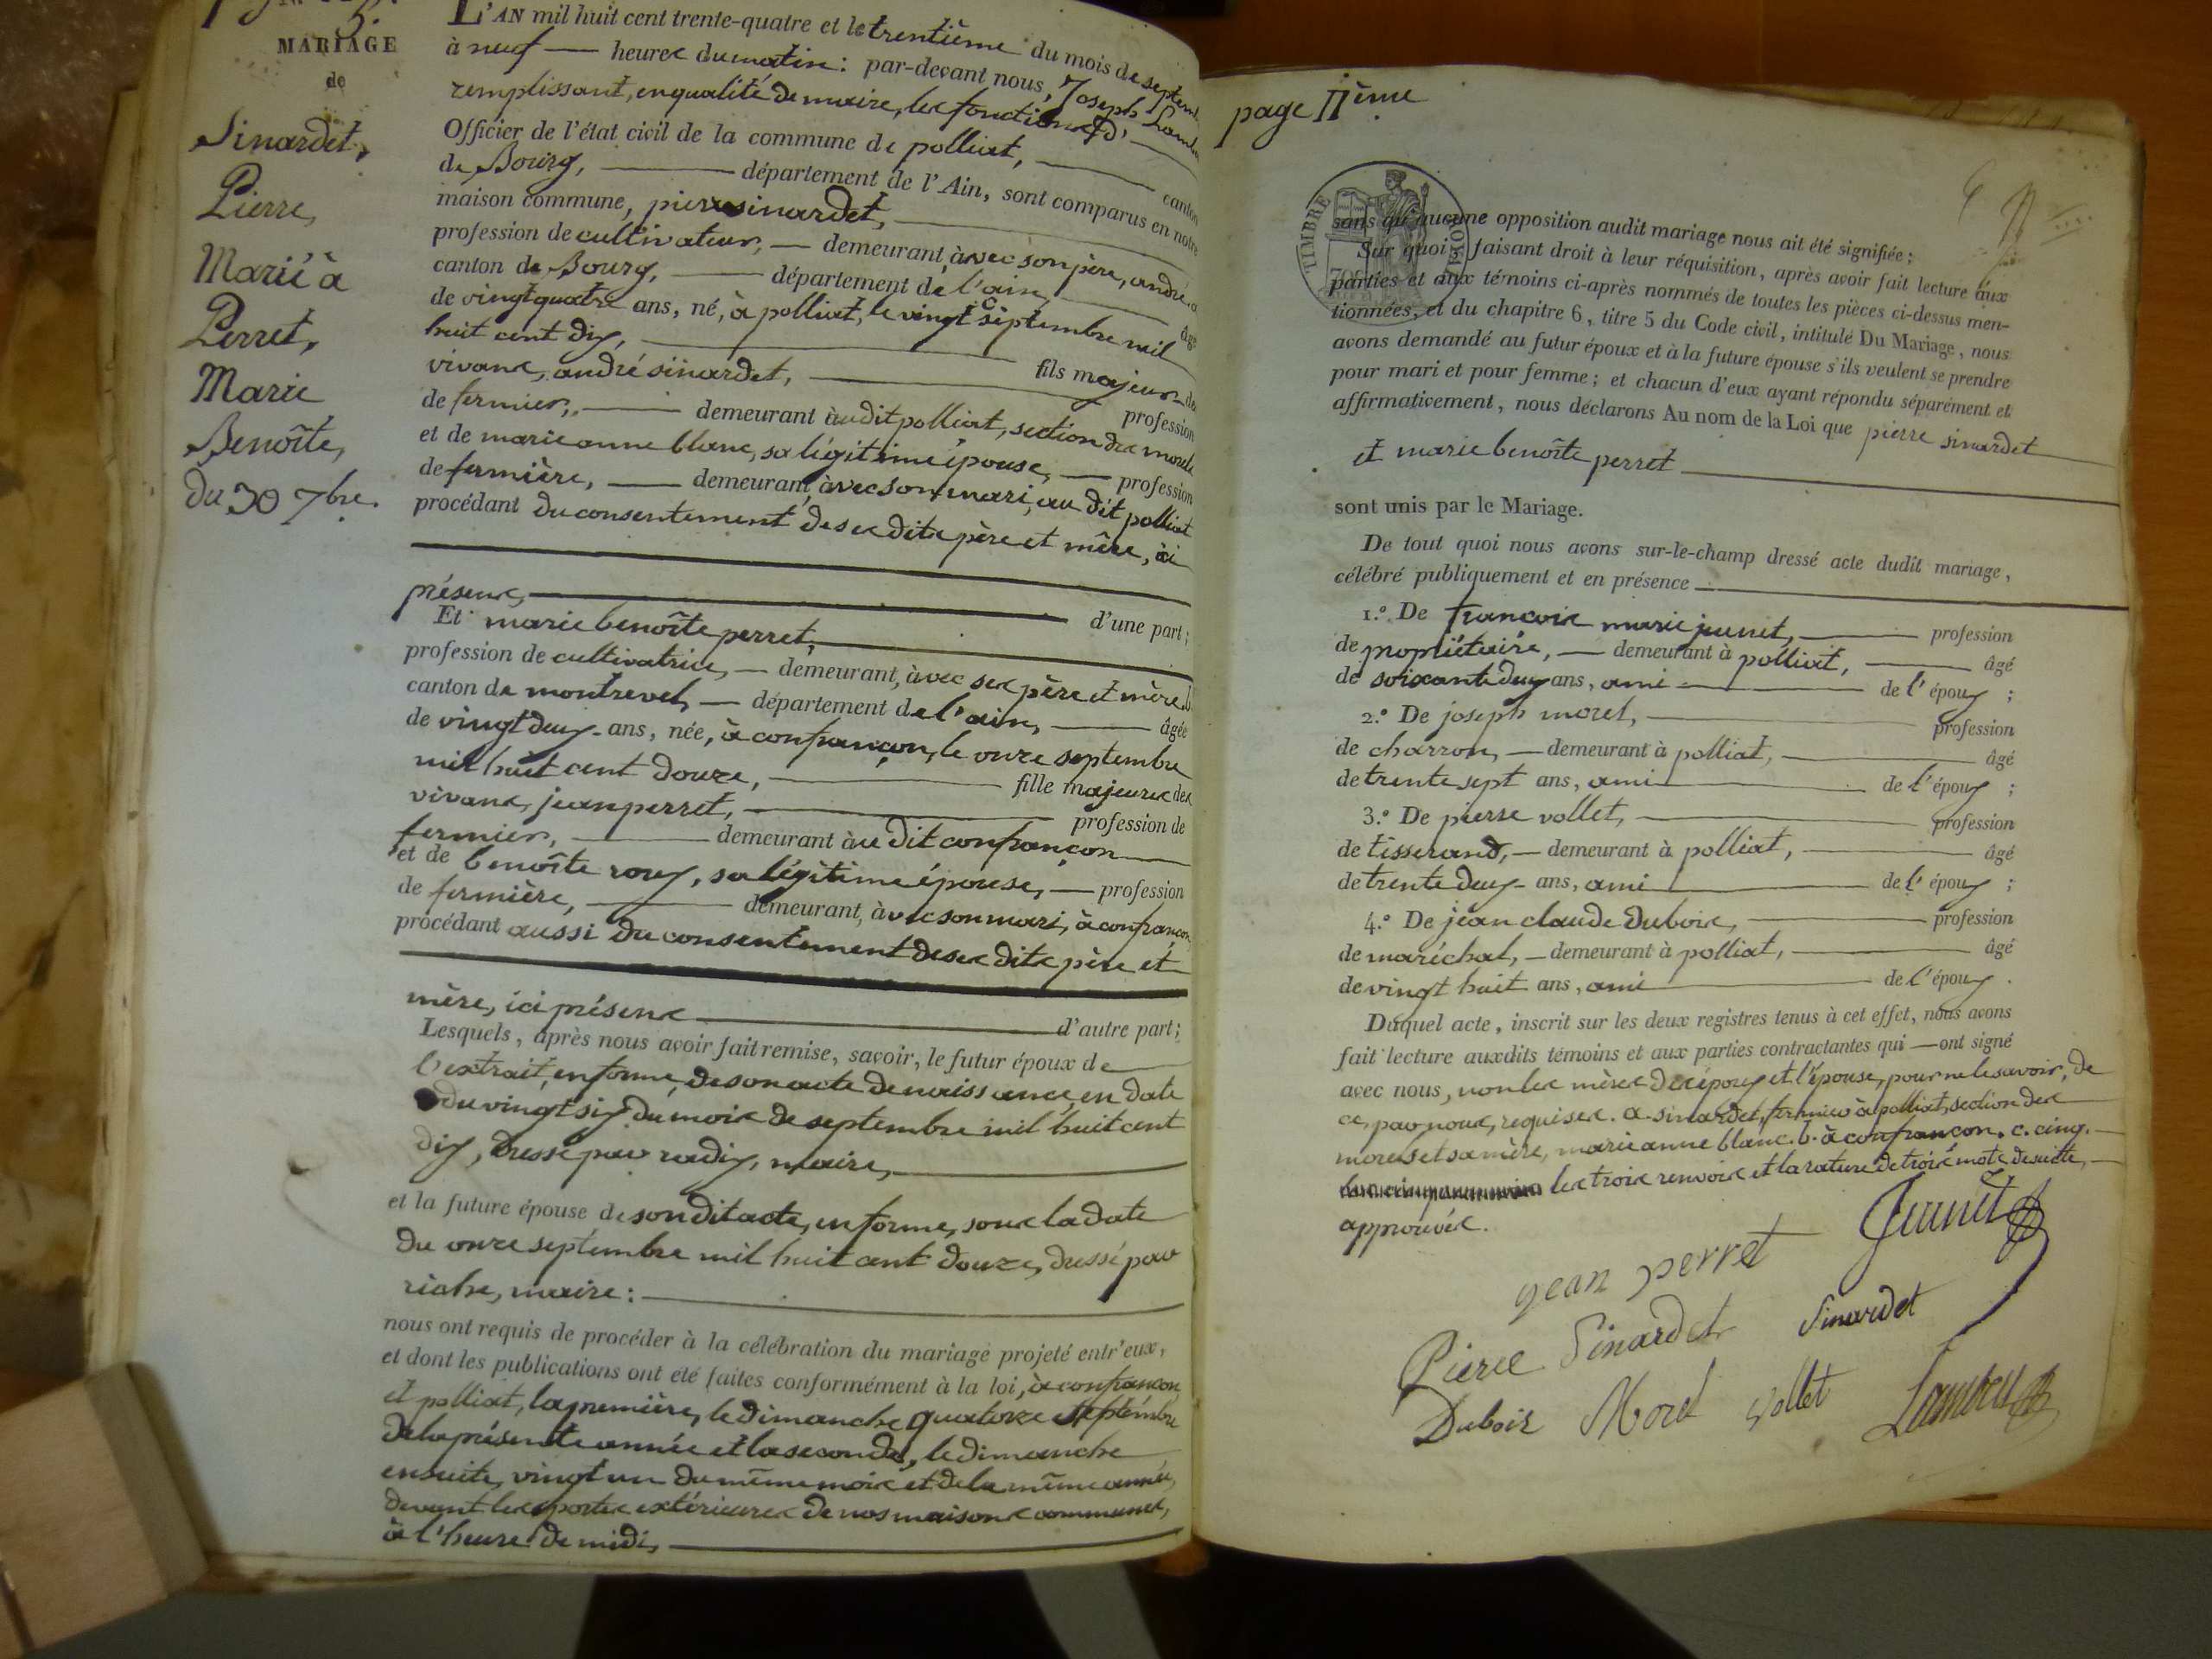 MARIAGE
de
Sinardet,
Pierre,
Marié à
Perret,
Marie
Benoîte,
du 30 7bre.
L'AN mil huit cent trente-quatre et le trentième du mois de septem
à neuf heures du matin : par-devant nous, Joseph Lamb
remplissant, en qualité de maire, les fonctions d'
Officier de l'état civil de la commune de polliat, canton
de Bourg, département de l'Ain, sont comparus en notre
maison commune, pierre sinardet,
profession de cultivateur, demeurant, avec son père, andré a
canton de Bourg, département de l'ain, âgé
de vingt quatre ans, né, à polliat, le vingt septembre mil
huit cent dix, fils majeur de
vivans, andré sinardet, profession
de fermier, demeurant audit polliat, section des morels
et de marie anne blanc, sa légitime épouse, profession
de fermière, demeurant, avec son mari, au dit polliat
procédant du consentement de ses dits père et mère, ici
présens, d'une part ;
Et marie benoîte perret,
profession de cultivatrice, demeurant, avec ses père et mère b
canton de montrevel, département de l'ain, âgée
de vingt deux ans, née, à confrançon, le onze septembre
mil huit cent douze, fille majeure des
vivans, jean perret, profession de
fermier, demeurant au dit confrançon
et de benoîte roux, sa légitime épouse, profession
de fermière, demeurant, avec son mari, à confrançon
procédant aussi du consentement de ses dits père et
mère, ici présens d'autre part ;
Lesquels, après nous avoir fait remise, savoir, le futur époux de
l'extrait, en forme, de son acte de naissance, en date
du vingt six du mois de septembre mil huit cent
dix, dressé par radix, maire,
et la future épouse de son dit acte, en forme, sous la date
du onze septembre mil huit cent douze, dressé par
riche, maire :
nous ont requis de procéder à la célébration du mariage projeté entr'eux,
et dont les publications ont été faites conformément à la loi, à confrançon
et polliat, la première, le dimanche quatorze septembre
de la présente année et la seconde, le dimanche
ensuite, vingt un du même mois et de la même année,
devant les portes extérieures de nos maisons communes,
à l'heure de midi,
page 11ème
TIMBRE ROYAL
sans qu'aucune opposition audit mariage nous ait été signifiée ;
Sur quoi, faisant droit à leur réquisition, après avoir fait lecture aux
parties et aux témoins ci-après nommés de toutes les pièces ci-dessus men-
tionnées, et du chapitre 6, titre 5 du Code civil, intitulé Du Mariage, nous
avons demandé au futur époux et à la future épouse s'ils veulent se prendre
pour mari et pour femme ; et chacun d'eux ayant répondu séparément et
affirmativement, nous déclarons Au nom de la Loi que pierre sinardet
et marie benoîte perret
sont unis par le Mariage.
De tout quoi nous avons sur-le-champ dressé acte dudit mariage,
célébré publiquement et en présence
1.º De françois marie jeunet, profession
de propriétaire, demeurant à polliat, âgé
de soixante deux ans, ami de l'époux ;
2.º De joseph morel, profession
de charron, demeurant à polliat, âgé
de trente sept ans, ami de l'époux ;
3.º De pierre vollet, profession
de tisserand, demeurant à polliat, âgé
de trente deux ans, ami de l'époux ;
4.º De jean claude dubois, profession
de maréchal, demeurant à polliat, âgé
de vingt huit ans, ami de l'époux .
Duquel acte, inscrit sur les deux registres tenus à cet effet, nous avons
fait lecture auxdits témoins et aux parties contractantes qui ont signé
avec nous, non les mères de l'époux et l'épouse, pour ne le savoir, de
ce, par nous, requises. a. sinardet, fermier à polliat, section des
morels et sa mère, marie anne blanc. b. à confrançon. c. cinq.
les trois renvois et la rature de trois mots de suite,
approuvés.
Jeunet
jean perret
Pierre Sinardet Sinardet
Dubois Morel vollet Lambert